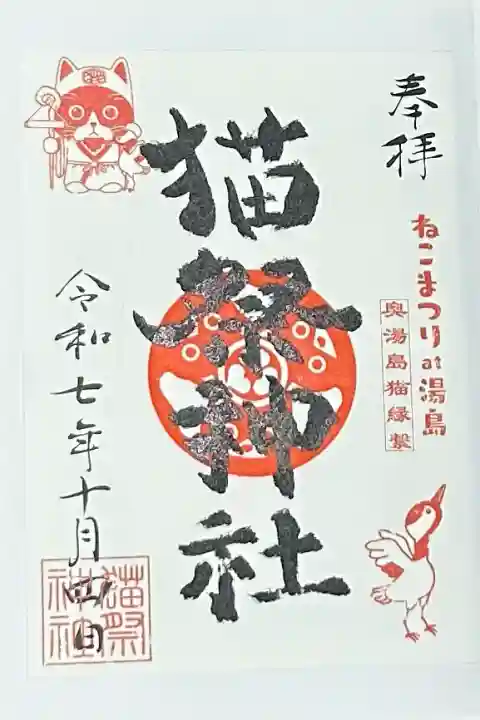 奉拝
ねこまつり at 湯島
奥湯島猫縁繋
猫祭神社
令和七年十月四日
猫祭
神社